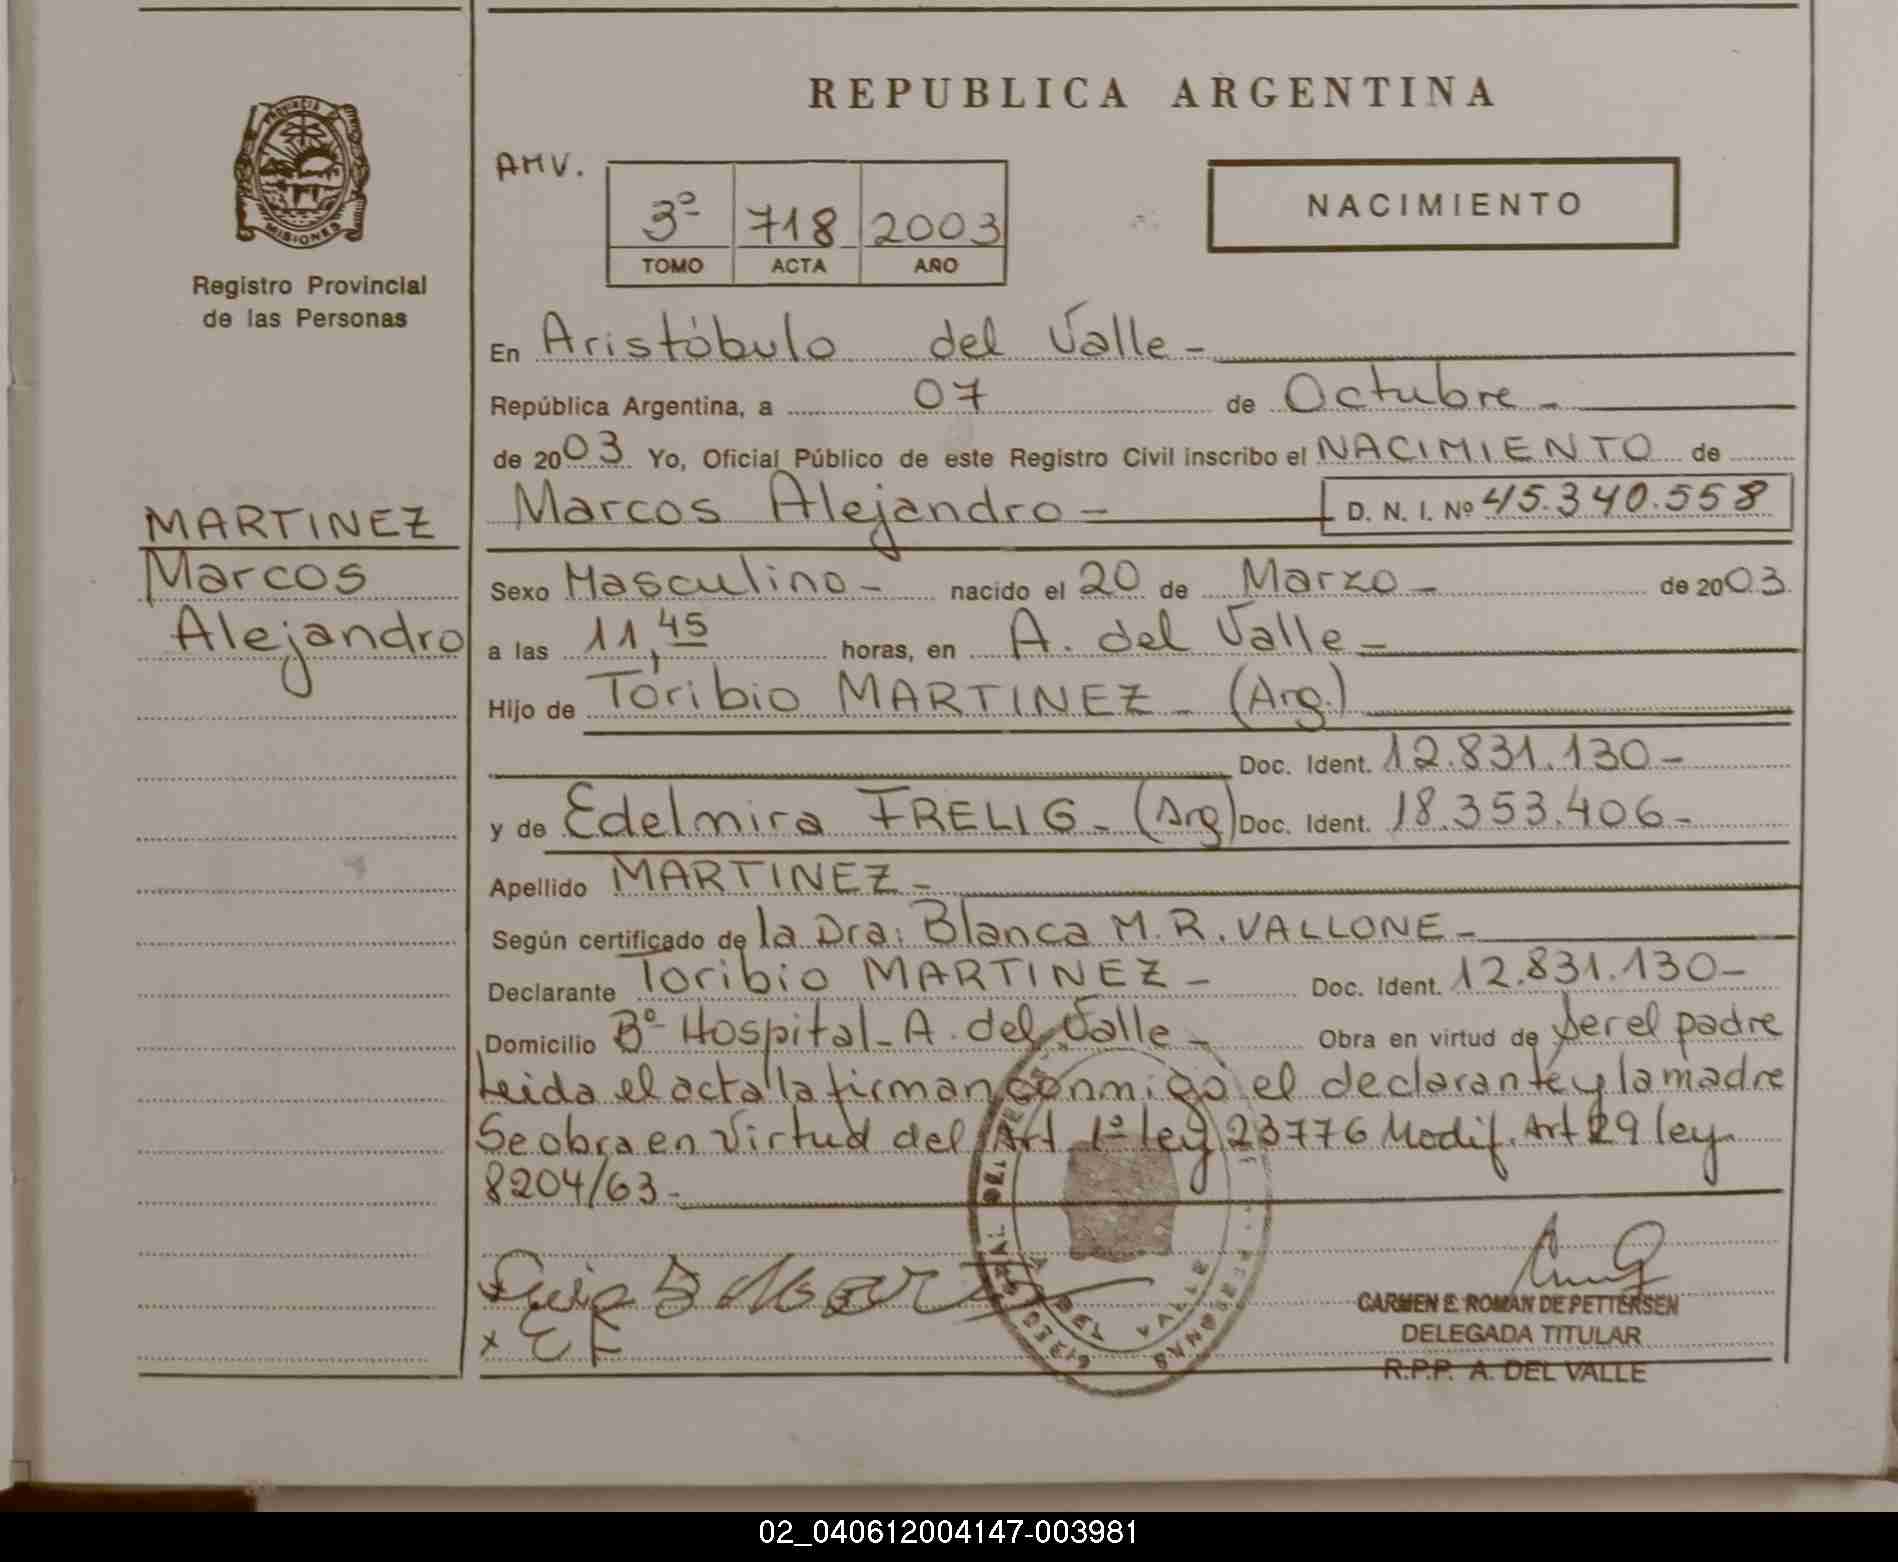 REPUBLICA ARGENTINA
PROVINCIA
MISIONES
Registro Provincial
de las Personas
AMV.
3º 718 2003
TOMO ACTA AÑO
NACIMIENTO
En Aristóbulo del Valle -
República Argentina, a 07 de Octubre -
de 2003 Yo, Oficial Público de este Registro Civil inscribo el NACIMIENTO de
Marcos Alejandro - D. N. I. Nº 45.340.558
MARTINEZ
Marcos
Alejandro
Sexo Masculino - nacido el 20 de Marzo - de 2003.
a las 11,45 horas, en A. del Valle -
Hijo de Toribio MARTINEZ - (Arg.)
Doc. Ident. 12.831.130 -
y de Edelmira FRELIG - (Arg) Doc. Ident. 18.353.406 -
Apellido MARTINEZ -
Según certificado de la Dra: Blanca M. R. VALLONE -
Declarante Toribio MARTINEZ - Doc. Ident. 12.831.130 -
Domicilio Bº Hospital - A. del Valle - Obra en virtud de ser el padre
Leida el acta la firman conmigo el declarante y la madre
Se obra en Virtud del Art. 1º ley 23776 Modif. Art 29 ley
8204/63 -
x E F
CARMEN E. ROMAN DE PETTERSEN
DELEGADA TITULAR
R.P.P. A. DEL VALLE
02_040612004147-003981